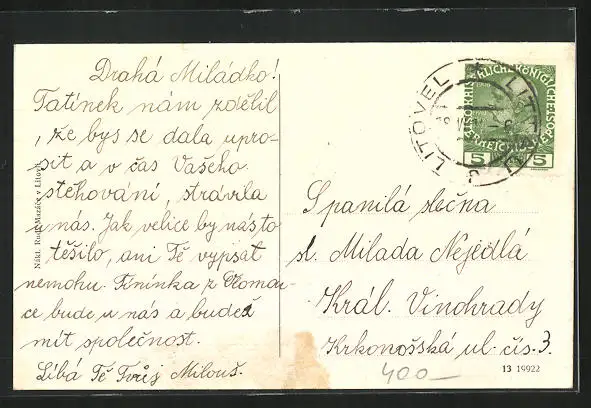 Drahá Miládko!
Tatínek nám zdělil
, že bys se dala upro-
sit a v čas Vašeho
stěhování, strávila
u nás. Jak velice by nás to
těšilo, ani Tě vypsat
nemohu. Fininka z Olomou-
ce bude u nás a budeš
mít společnost.
Líbá Tě Tvůj Milouš.
Nákl. Rud. Mazáče v Litovli
LITOVEL
5 5
Spanilá slečna
sl. Milada Nejedlá
Král. Vinohrady
Krkonošská ul. čís. 3.
400 –
13 19922